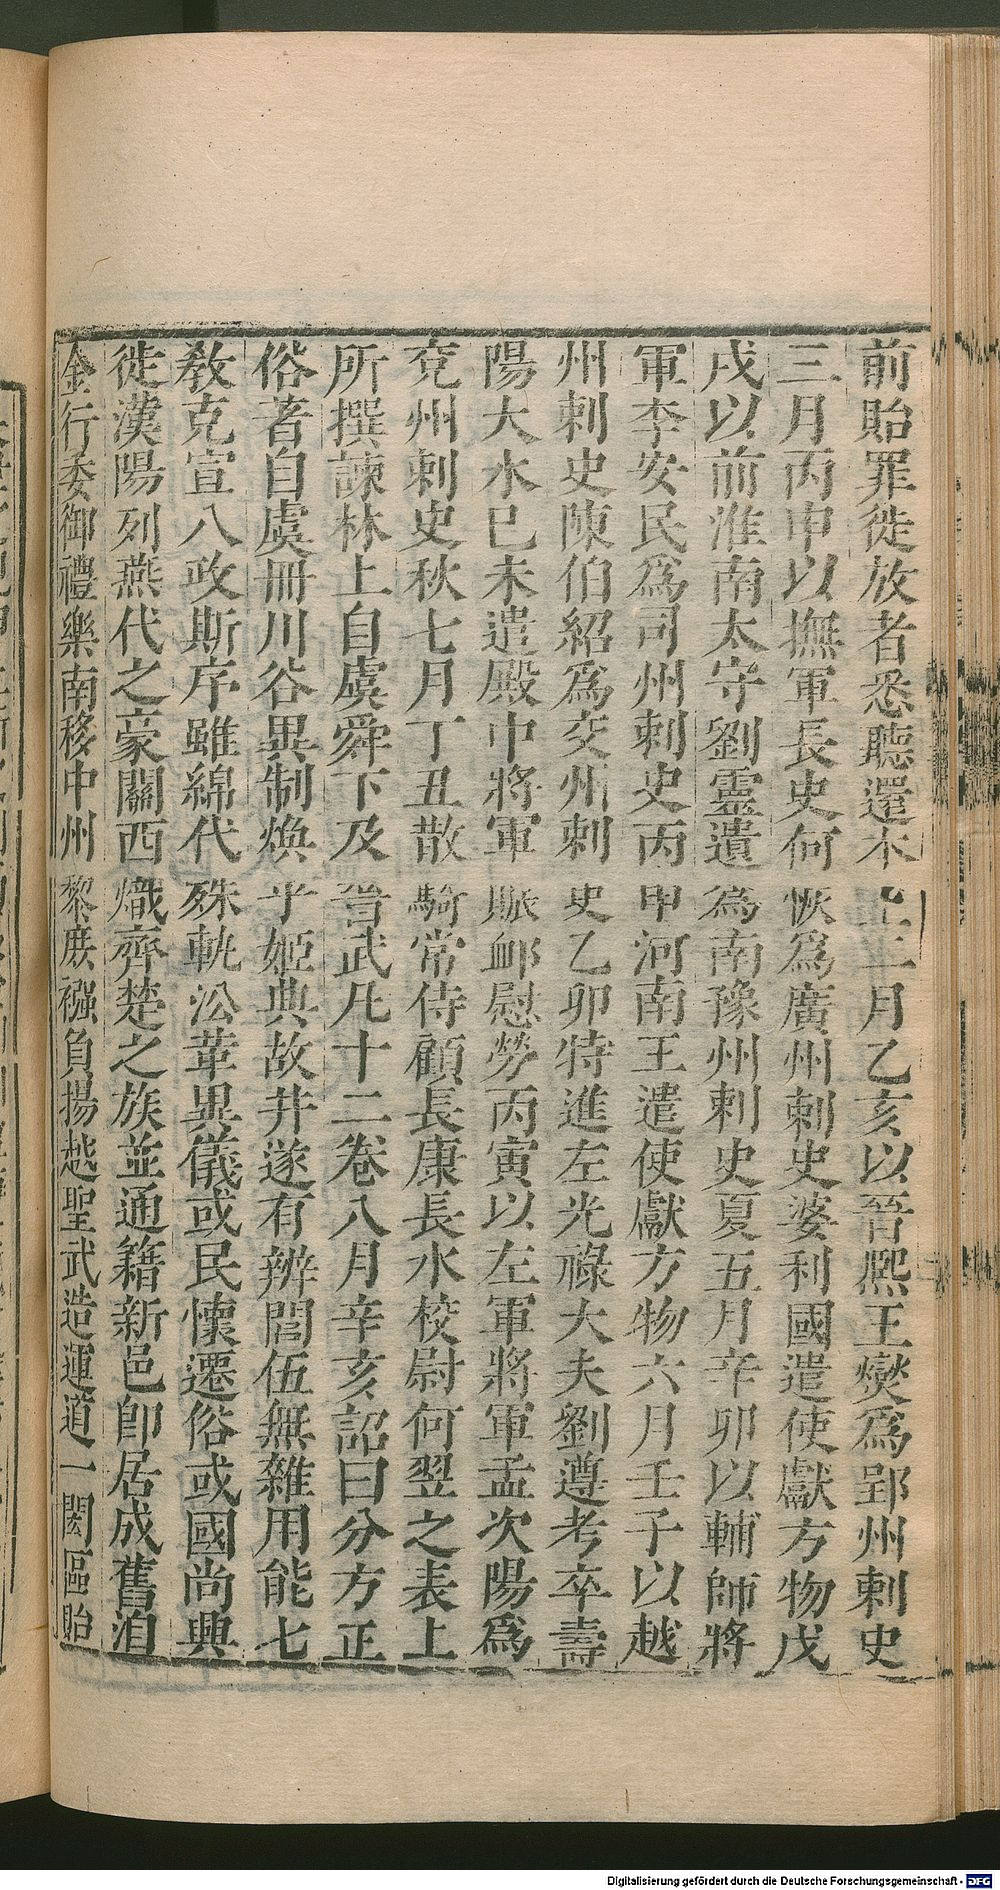 前貽罪徙放者悉聽還本土二月乙亥以晉熙王燮爲郢州刺史
三月丙申以撫軍長史何恢爲廣州刺史婆利國遣使獻方物戊
戌以前淮南太守劉靈遺爲南豫州刺史夏五月辛卯以輔師將
軍李安民爲司州刺史丙申河南王遣使獻方物六月壬子以越
州刺史陳伯紹爲交州刺史乙卯特進左光祿大夫劉遵考卒壽
陽大水已未遣殿中將軍賑䘏慰勞丙寅以左軍將軍孟次陽爲
兗州刺史秋七月丁丑散騎常侍顧長康長水校尉何翌之表上
所撰諫林上自虞舜下及晉武凡十二卷八月辛亥詔曰分方正
俗著自虞冊川谷異制煥乎姬典故井遂有辨閭伍無雜用能七
敎克宣八政斯序雖綿代殊軌㳂革異儀或民懷遷俗或國尚興
徙漢陽列燕代之豪關西熾齊楚之族並通籍新邑卽居成舊洎
金行委御禮樂南移中州黎庶襁負揚越聖武造運道一閎區貽
Digitalisierung gefördert durch die Deutsche Forschungsgemeinschaft - DFG